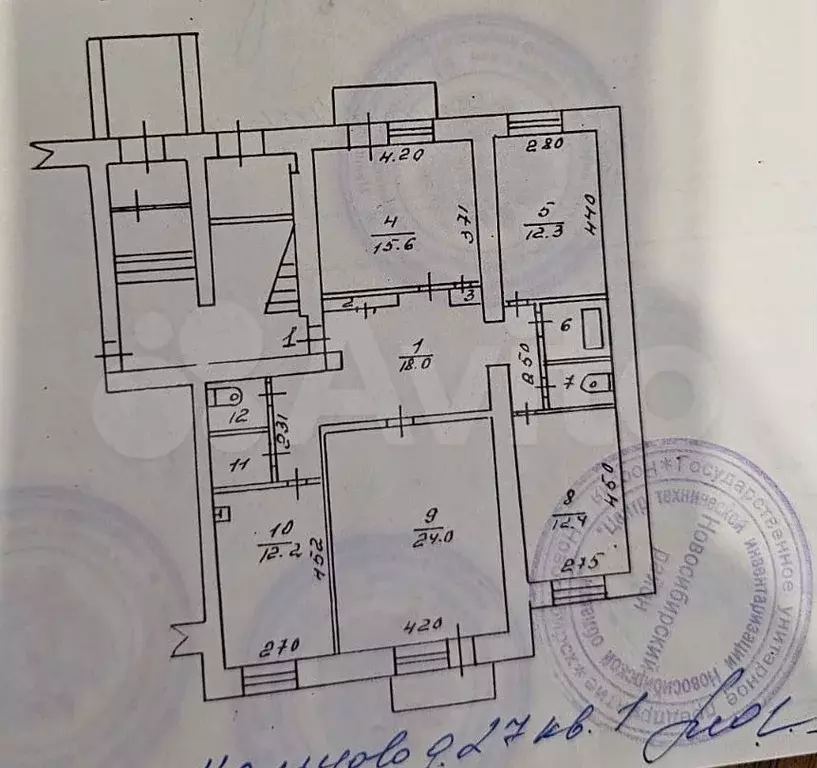 4.20
280
4
15.6
371
5
12.3
440
2
3
1
1
18.0
6
7
850
12
11
231
10
12.2
452
9
24.0
8
12.4
450
275
270
420
Avito
Государственное унитарное предприятие
Новосибирской области
"Центр технической инвентаризации
Новосибирский
район
д. 27 кв. 1